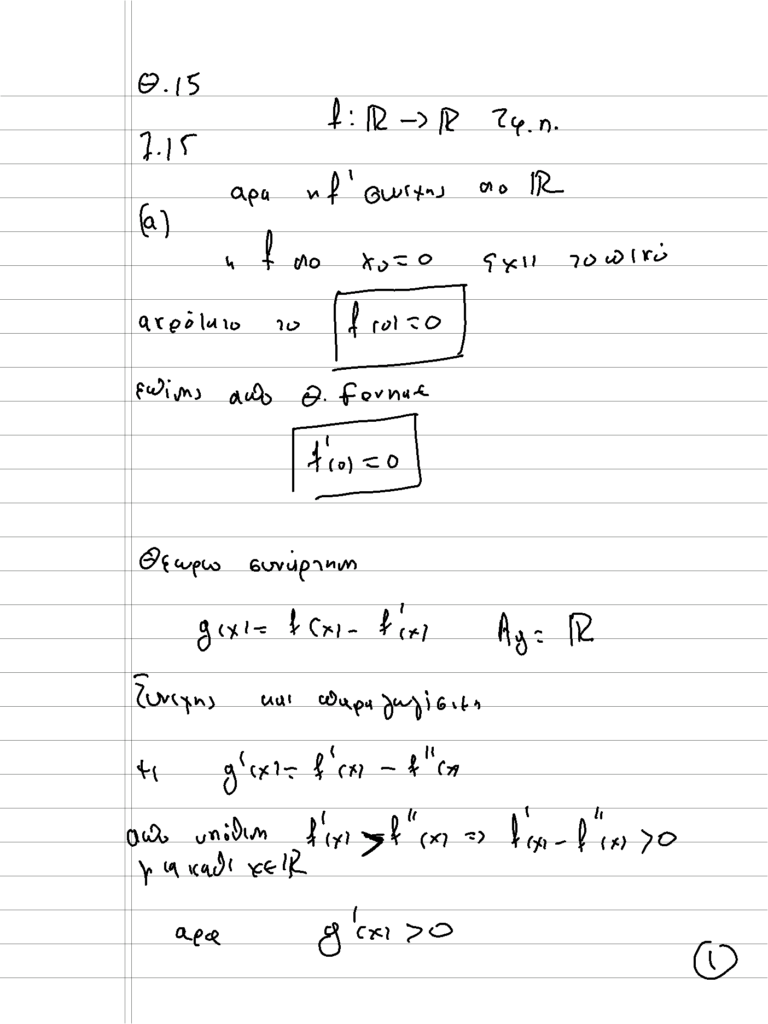 Θ.15
f: ℝ → ℝ 2φ.π.
7.15
αρα η f' συνεχης στο ℝ
(a)
η f στο x₀ = 0 εχει τοπικό
ακρότατο το f(0) = 0
επίσης από Θ. Fermat
f'(0) = 0
Θεωρω συνάρτηση
g(x) = f(x) - f'(x) Ag = ℝ
Συνεχης και παραγωγίσιμη
με g'(x) = f'(x) - f''(x)
από υπόθεση f'(x) > f''(x) ⇒ f'(x) - f''(x) > 0
για καθε x∈ℝ
αρα g'(x) > 0
1